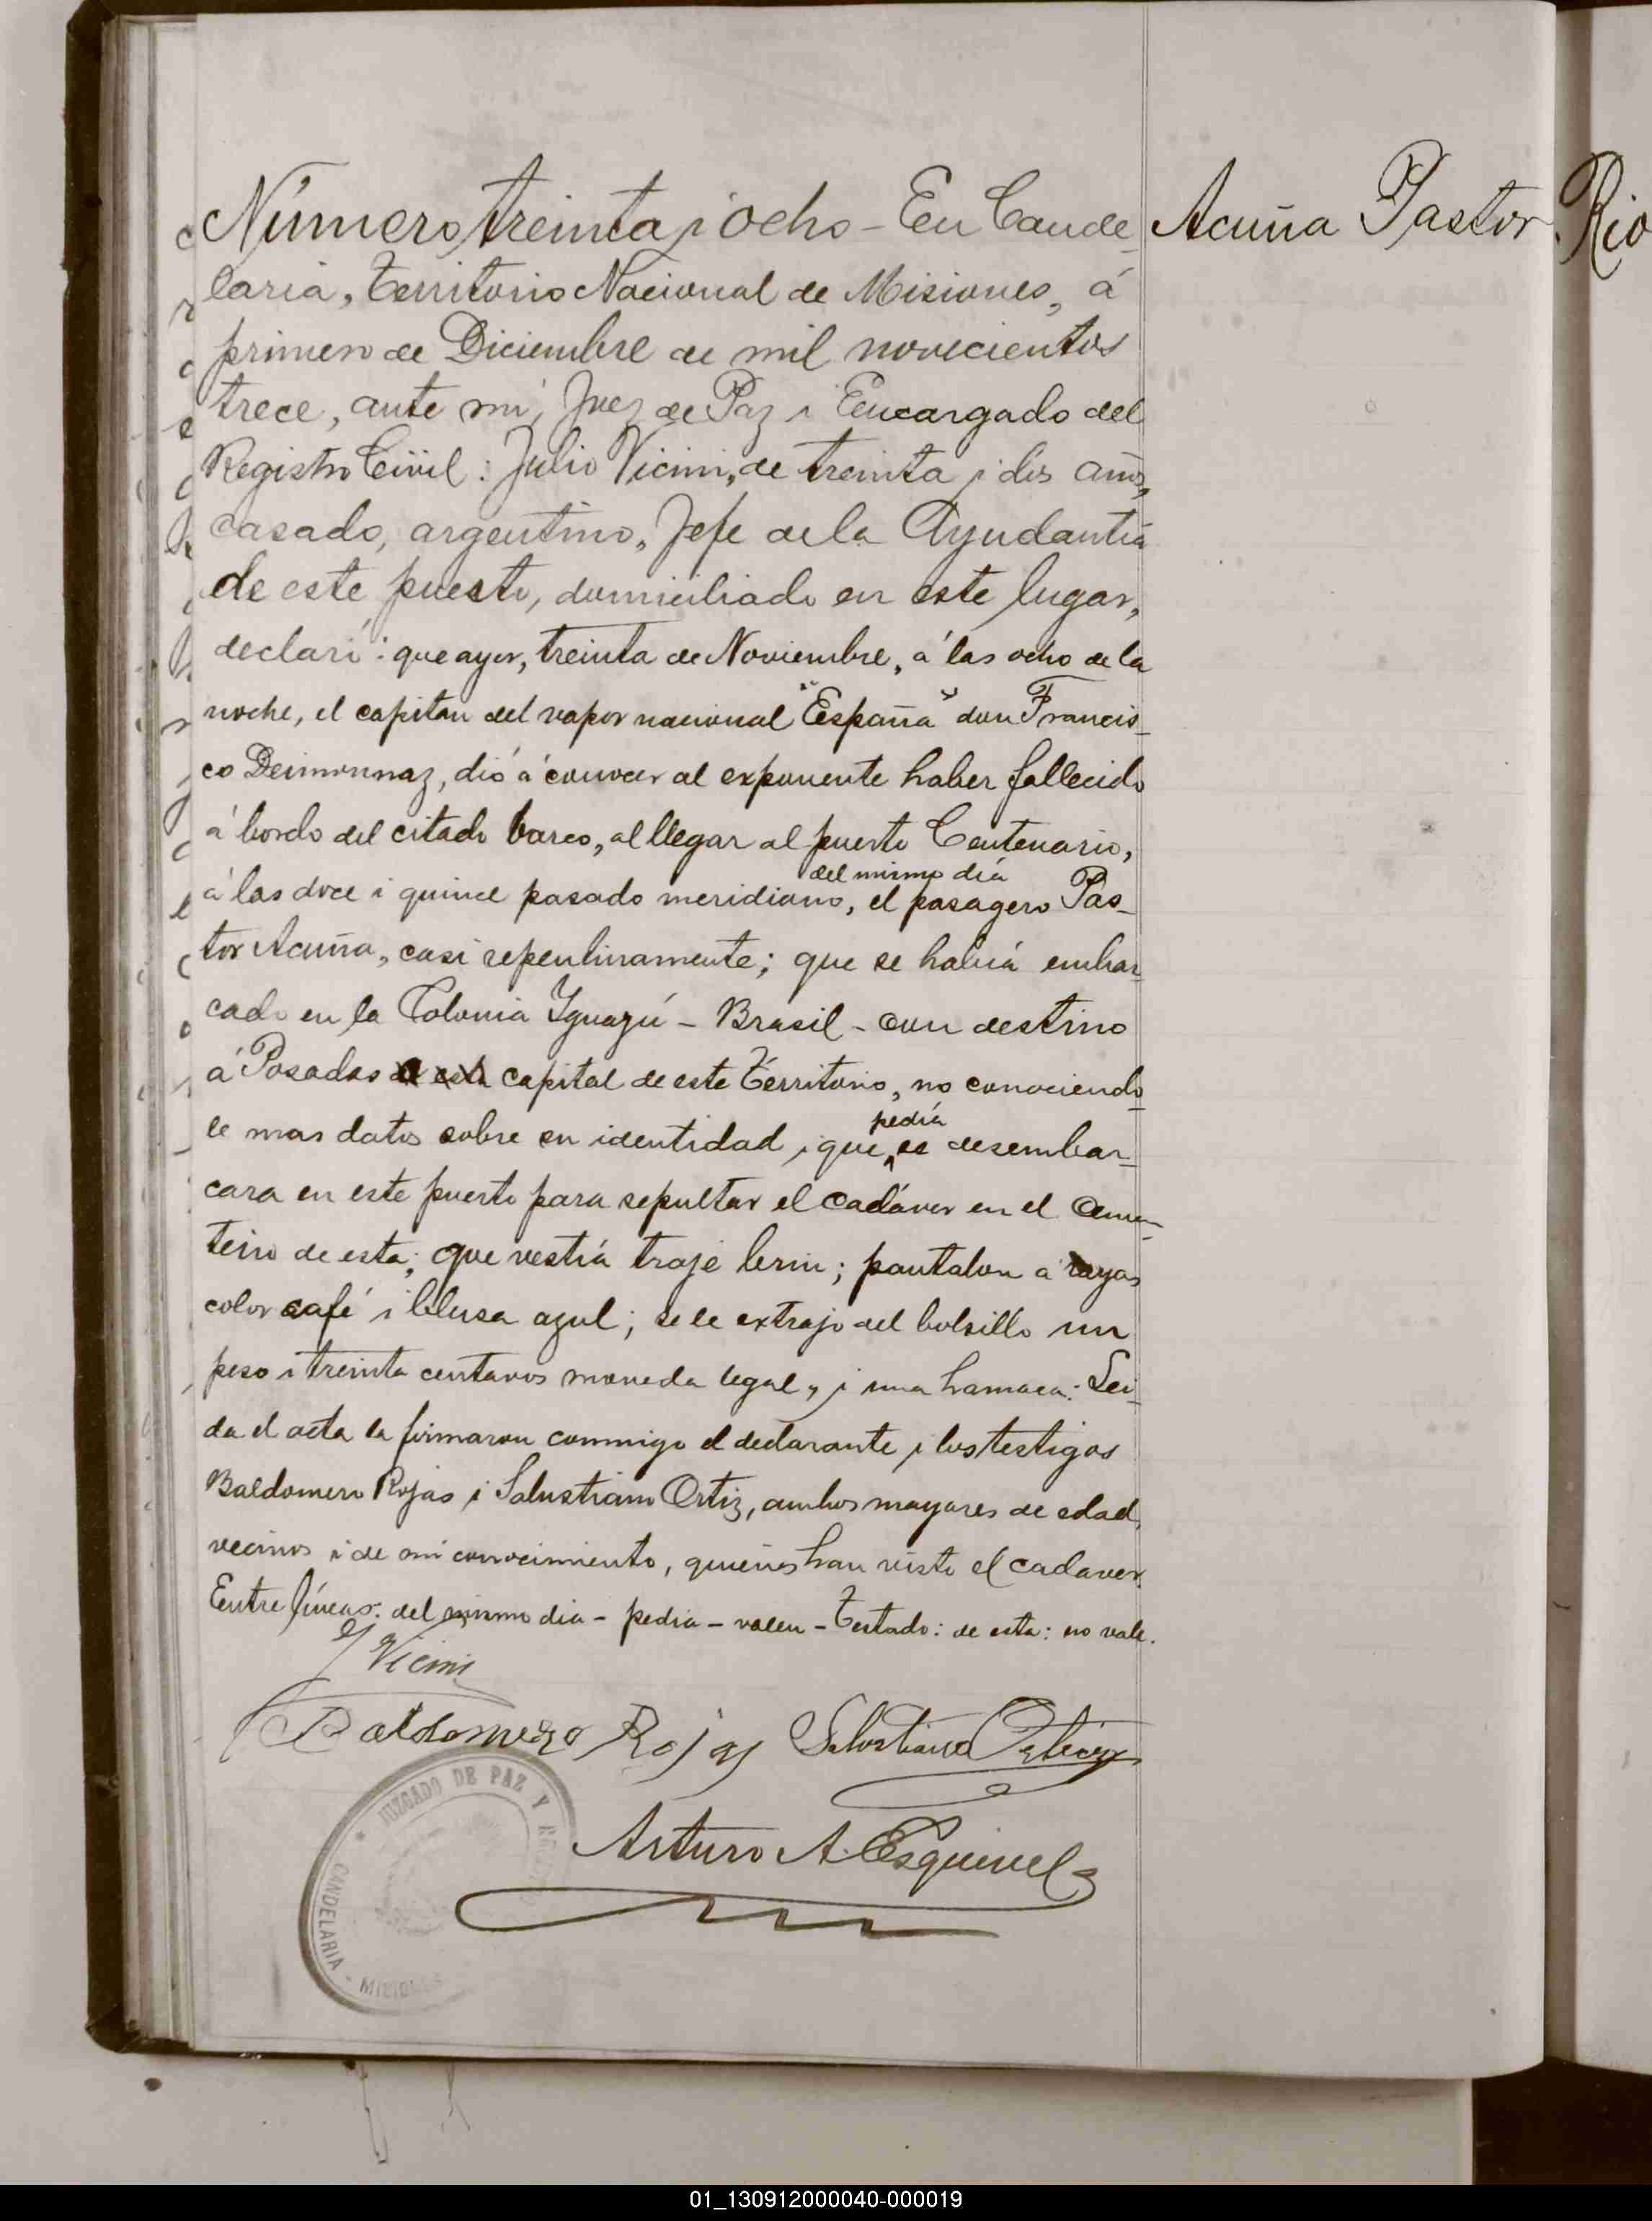 Número treinta i ocho - En Cande-
Acuña Pastor
Rio
laria, Territorio Nacional de Misiones, á
primero de Diciembre de mil novecientos
trece, ante mi, Juez de Paz i Encargado del
Registro Civil: Julio Vicini, de treinta i dos años,
casado, argentino, Jefe de la Ayudantia
de este puesto, domiciliado en este lugar,
declaró: que ayer, treinta de Noviembre, á las ocho de la
noche, el capitan del vapor nacional "España" don Francis-
co Deimonnaz, dió á conocer al exponente haber fallecido
á bordo del citado barco, al llegar al puerto Centenario,
del mismo día
á las doce i quince pasado meridiano, el pasagero Pas-
tor Acuña, casi repentinamente; que se había embar-
cado en la Colonia Iguazú - Brasil - con destino
á Posadas de esta capital de este Territorio, no conociendo-
pedía
le mas datos sobre su identidad i que se desembar-
cara en este puerto para sepultar el cadáver en el Cemen-
terio de esta; que vestía traje brin; pantalon a rayas
color café i blusa azul; se le extrajo del bolsillo un
peso i treinta centavos moneda legal, i una hamaca: Lei-
da el acta la firmaron conmigo el declarante i los testigos
Baldomero Rojas i Salustiano Ortiz, ambos mayores de edad,
vecinos i de mi conocimiento, quienes han visto el cadaver.
Entre líneas: del mismo dia - pedia - valen - Testado: de esta: no vale.
J Vicini
Baldomero Rojas Salustiano Ortiz
JUZGADO DE PAZ Y
CANDELARIA - MISIONES
Arturo A. Esquivel
01_130912000040-000019